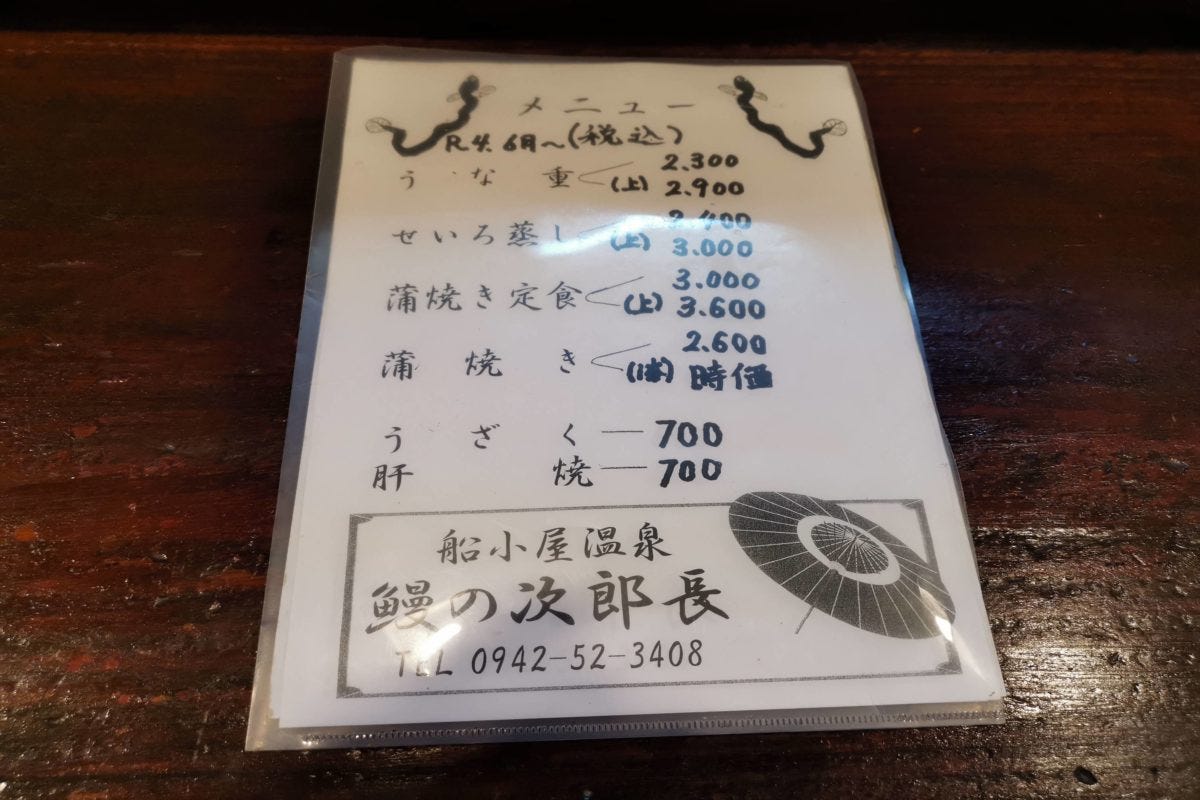 メニュー
R4. 6月〜(税込)
うな重 2.300
(上) 2.900
せいろ蒸し 2.400
(上) 3.000
蒲焼き定食 3.000
(上) 3.600
蒲焼き 2.600
時価
うざく — 700
肝焼 — 700
船小屋温泉
鰻の次郎長
TEL 0942-52-3408